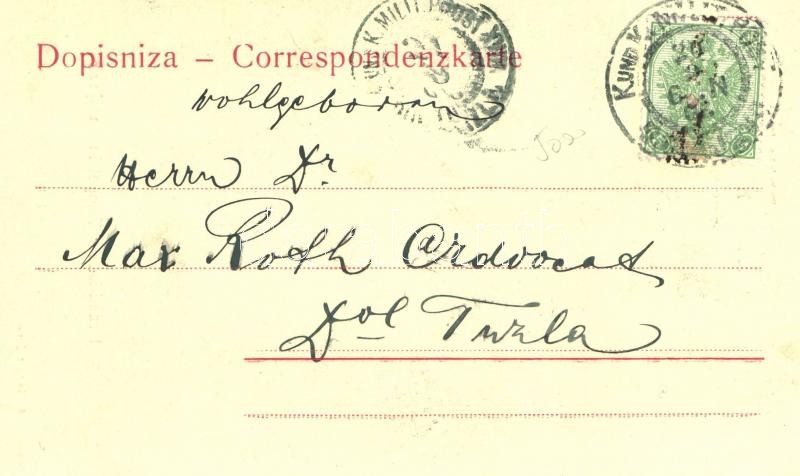 Dopisniza – Correspondenzkarte
K. UND K. MILIT. POST
K. UND K. MILIT. POST
Wohlgeboren
Herrn Dr
Max Roth Advocat
Dol Tuzla